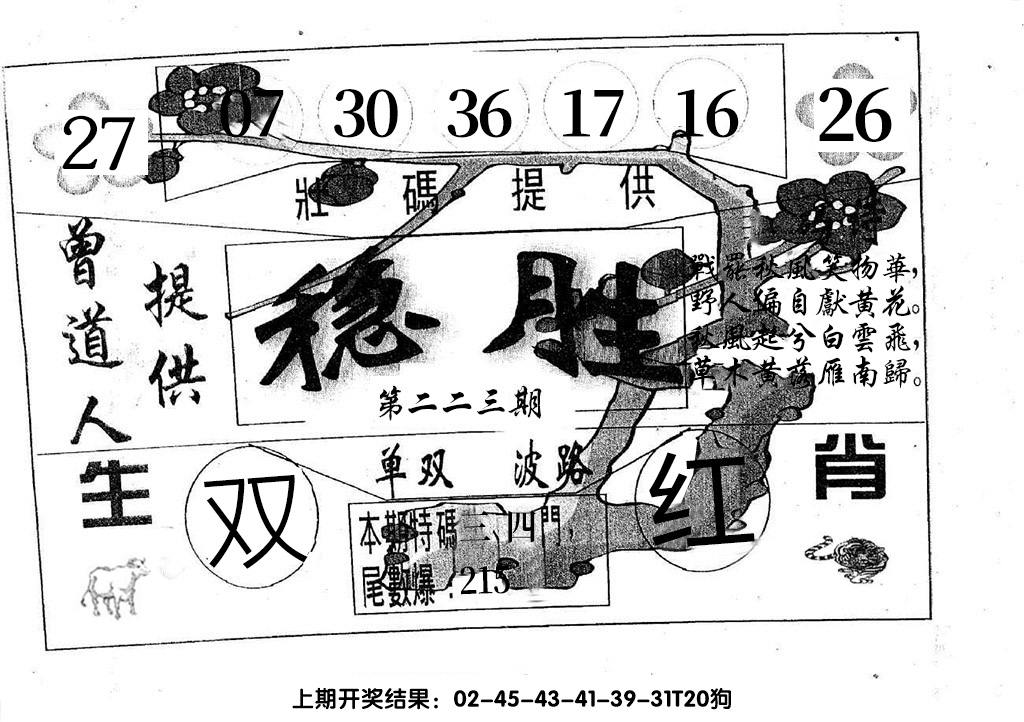 27 07 30 36 17 16 26
壯 碼 提 供
曾道人
提供
稳胜
第二二三期
戰罷秋風笑物華，
野人偏自獻黃花。
秋風起兮白雲飛，
草木黃落雁南歸。
单双 波路
生肖
双
红
本期特碼三、四門，
尾數爆：215
上期开奖结果：02-45-43-41-39-31T20狗